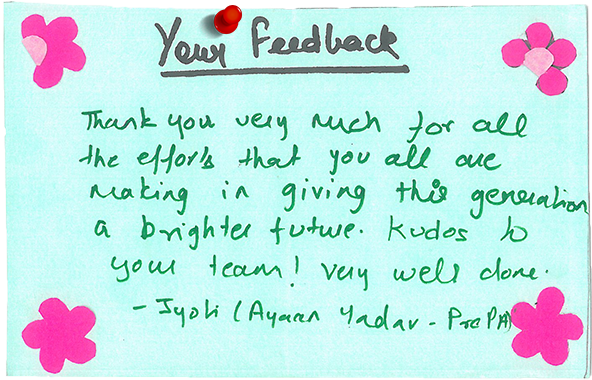 Your Feedback
Thank you very much for all
the efforts that you all are
making in giving this generation
a brighter future. Kudos to
your team! very well done.
- Jyoti (Ayaan Yadav - Prep A)